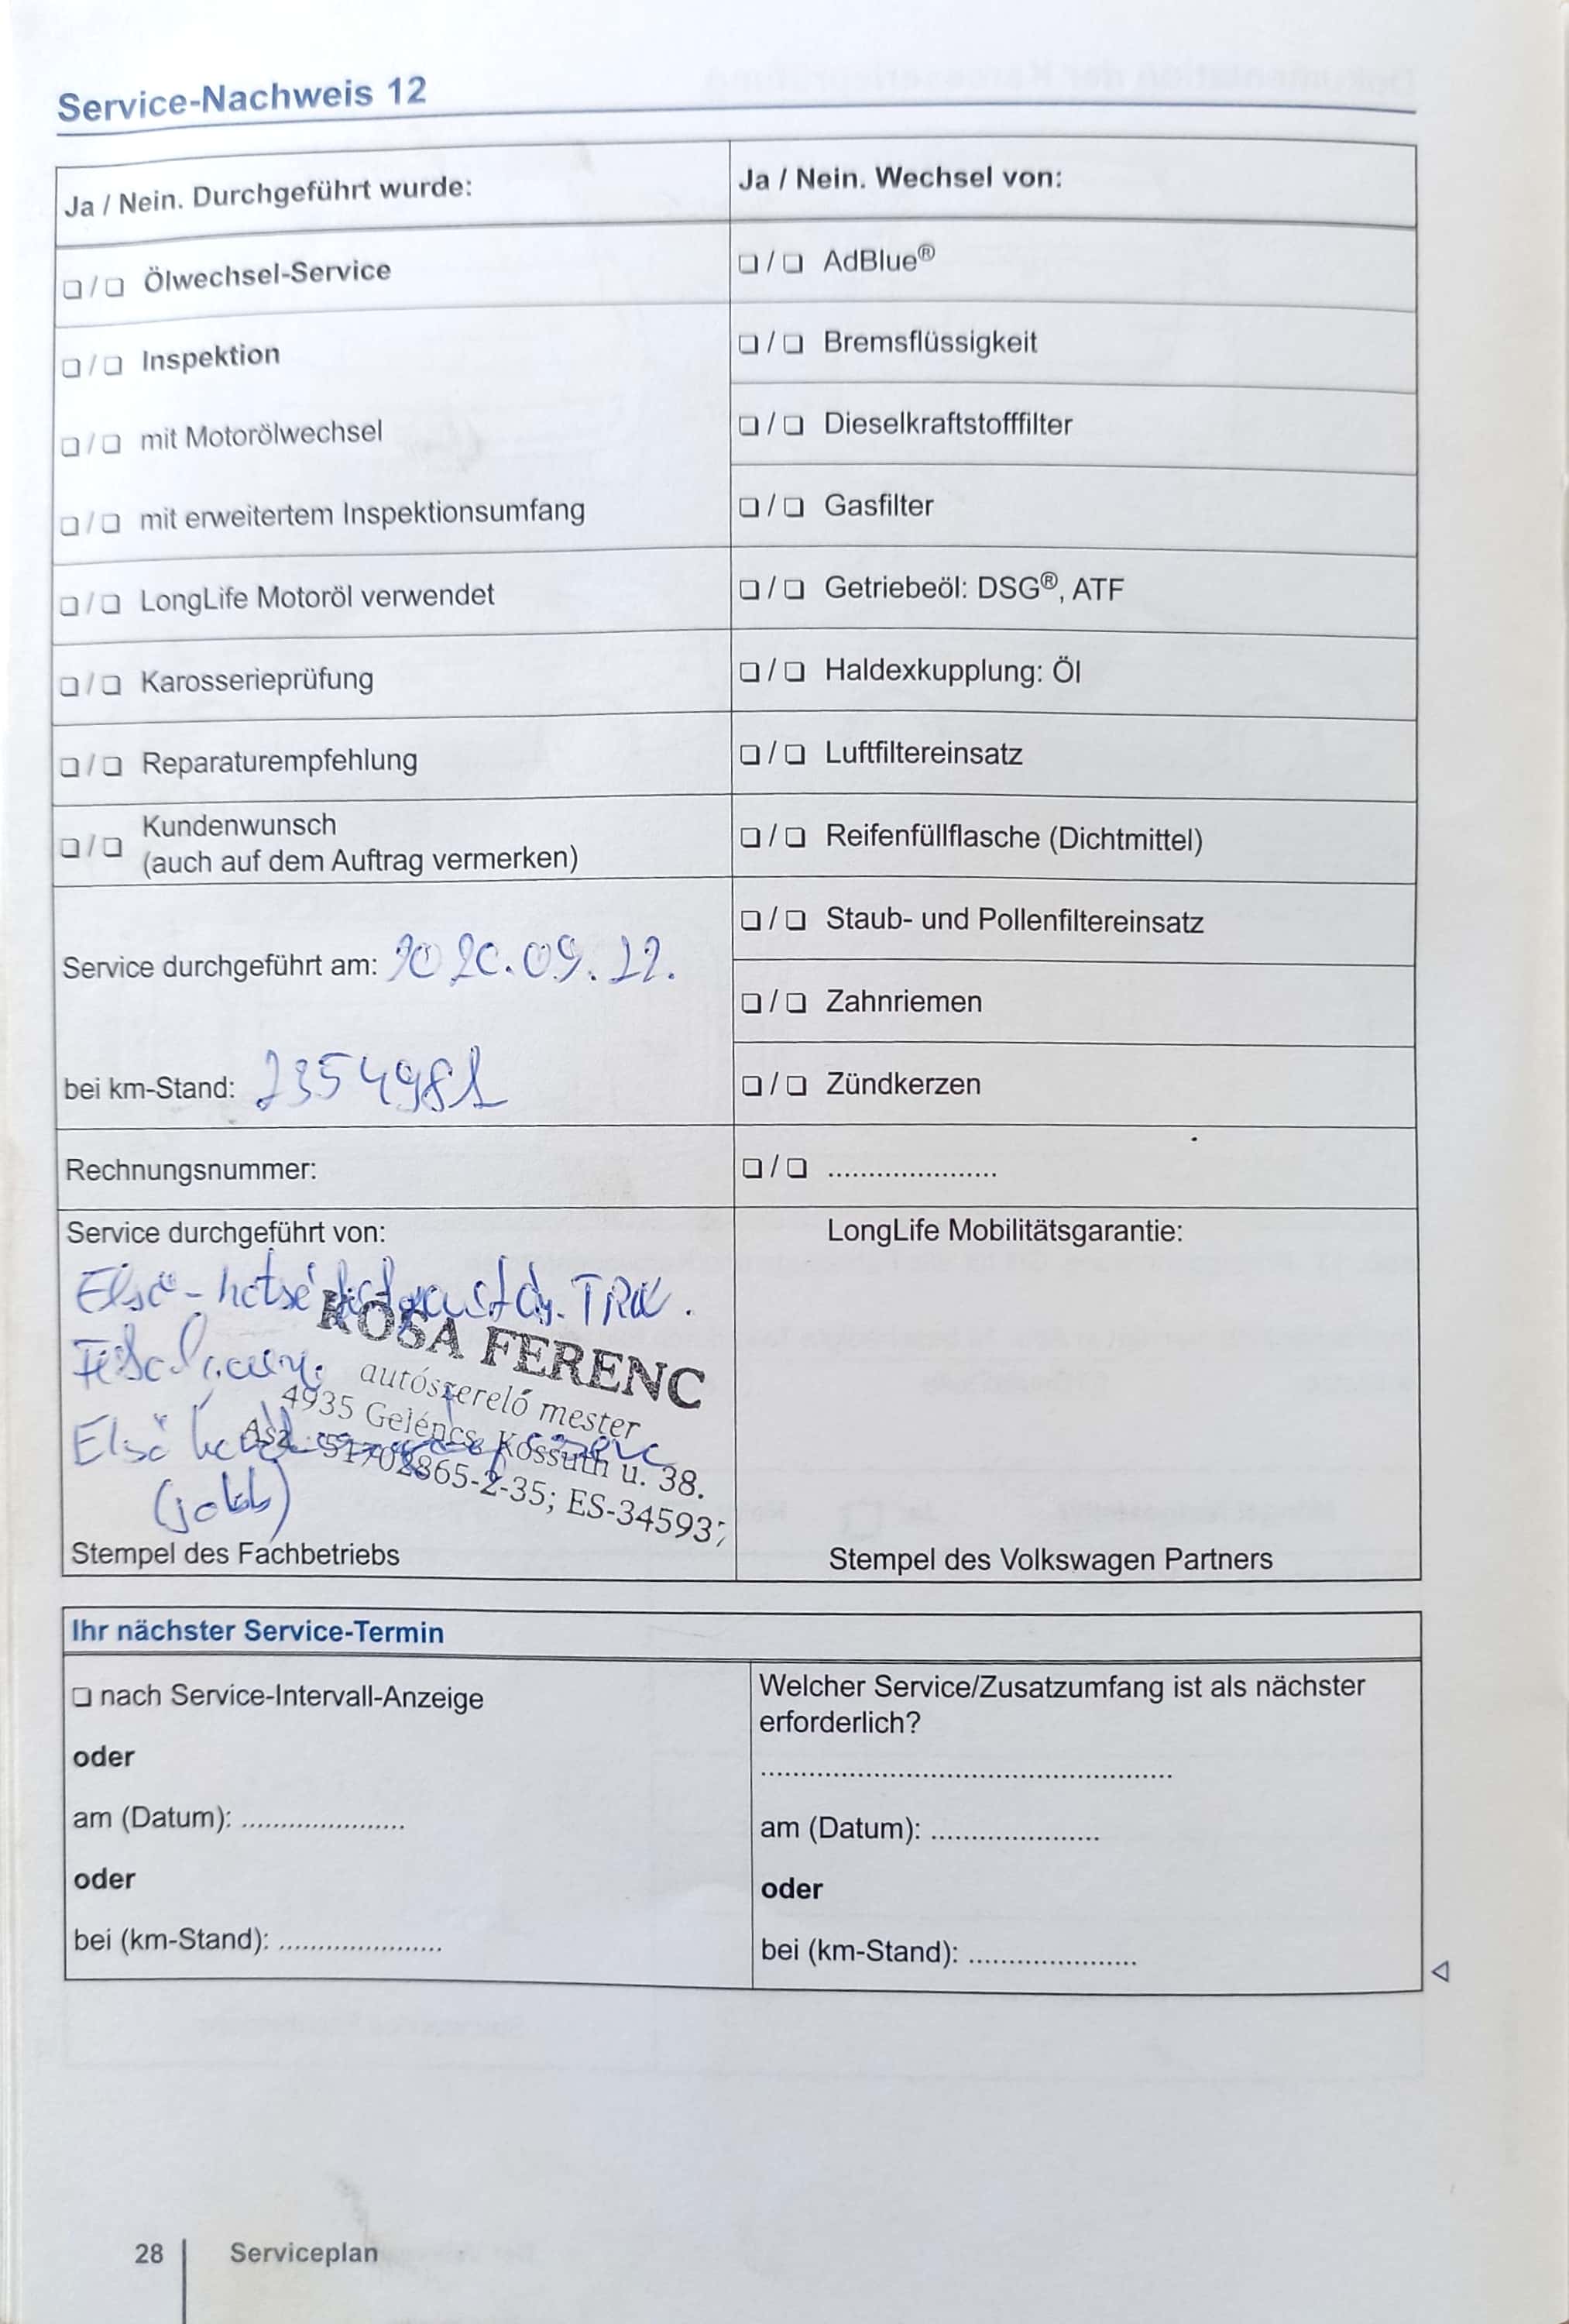 Service-Nachweis 12
Ja / Nein. Durchgeführt wurde:
❏ / ❏ Ölwechsel-Service
❏ / ❏ Inspektion
❏ / ❏ mit Motorölwechsel
❏ / ❏ mit erweitertem Inspektionsumfang
❏ / ❏ LongLife Motoröl verwendet
❏ / ❏ Karosserieprüfung
❏ / ❏ Reparaturempfehlung
❏ / ❏ Kundenwunsch
(auch auf dem Auftrag vermerken)
Service durchgeführt am: 2020.09.22.
bei km-Stand: 235498
Rechnungsnummer:
Service durchgeführt von:
Első-hátsó
Első
(jobb)
ROSA FERENC
autószerelő mester
4935 Gelénes, Kossuth u. 38.
Asz.: 51702865-2-35; ES-34593
Stempel des Fachbetriebs
Ja / Nein. Wechsel von:
❏ / ❏ AdBlue®
❏ / ❏ Bremsflüssigkeit
❏ / ❏ Dieselkraftstofffilter
❏ / ❏ Gasfilter
❏ / ❏ Getriebeöl: DSG®, ATF
❏ / ❏ Haldexkupplung: Öl
❏ / ❏ Luftfiltereinsatz
❏ / ❏ Reifenfüllflasche (Dichtmittel)
❏ / ❏ Staub- und Pollenfiltereinsatz
❏ / ❏ Zahnriemen
❏ / ❏ Zündkerzen
❏ / ❏ .....................
LongLife Mobilitätsgarantie:
Stempel des Volkswagen Partners
Ihr nächster Service-Termin
❏ nach Service-Intervall-Anzeige
oder
am (Datum): .....................
oder
bei (km-Stand): .....................
Welcher Service/Zusatzumfang ist als nächster
erforderlich?
...................................................
am (Datum): .....................
oder
bei (km-Stand): .....................
28 Serviceplan